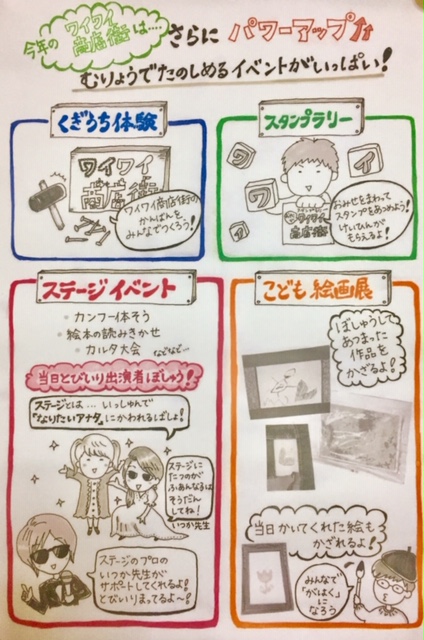 今年の
ワイワイ
商店街
は....
さらに パワーアップ
むりょうでたのしめるイベントがいっぱい!
くぎうち体験
ワイワイ
商店街
ワイワイ商店街の
かんばんを
みんなでつくろう!
スタンプラリー
ワ
イ
ワ
イ
ワイワイ
商店街
おみせをまわって
スタンプをあつめよう!
けいひんが
もらえるよ!
ステージイベント
・カンフー体そう
・絵本の読みきかせ
・カルタ大会
などなど...
当日とびいり出演者ぼしゅう!
ステージとは...いっしゅんで
「なりたいアナタ」にかわれるばしょ!
ステージに
たつのが
ふあんなるは
そうだん
してね!
いつか先生
ステージのプロの
いつか先生が
サポートしてくれるよ!
とびいりまってるよ〜!
こども絵画展
ぼしゅうして
あつまった
作品を
かざるよ!
当日かいてくれた絵も
かざれるよ!
みんなで
「がはく」に
なろう